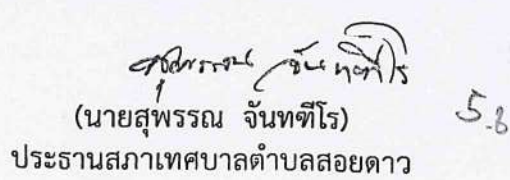 สุพรรณ จันทฑีโร
(นายสุพรรณ จันทฑีโร)
ประธานสภาเทศบาลตำบลสอยดาว